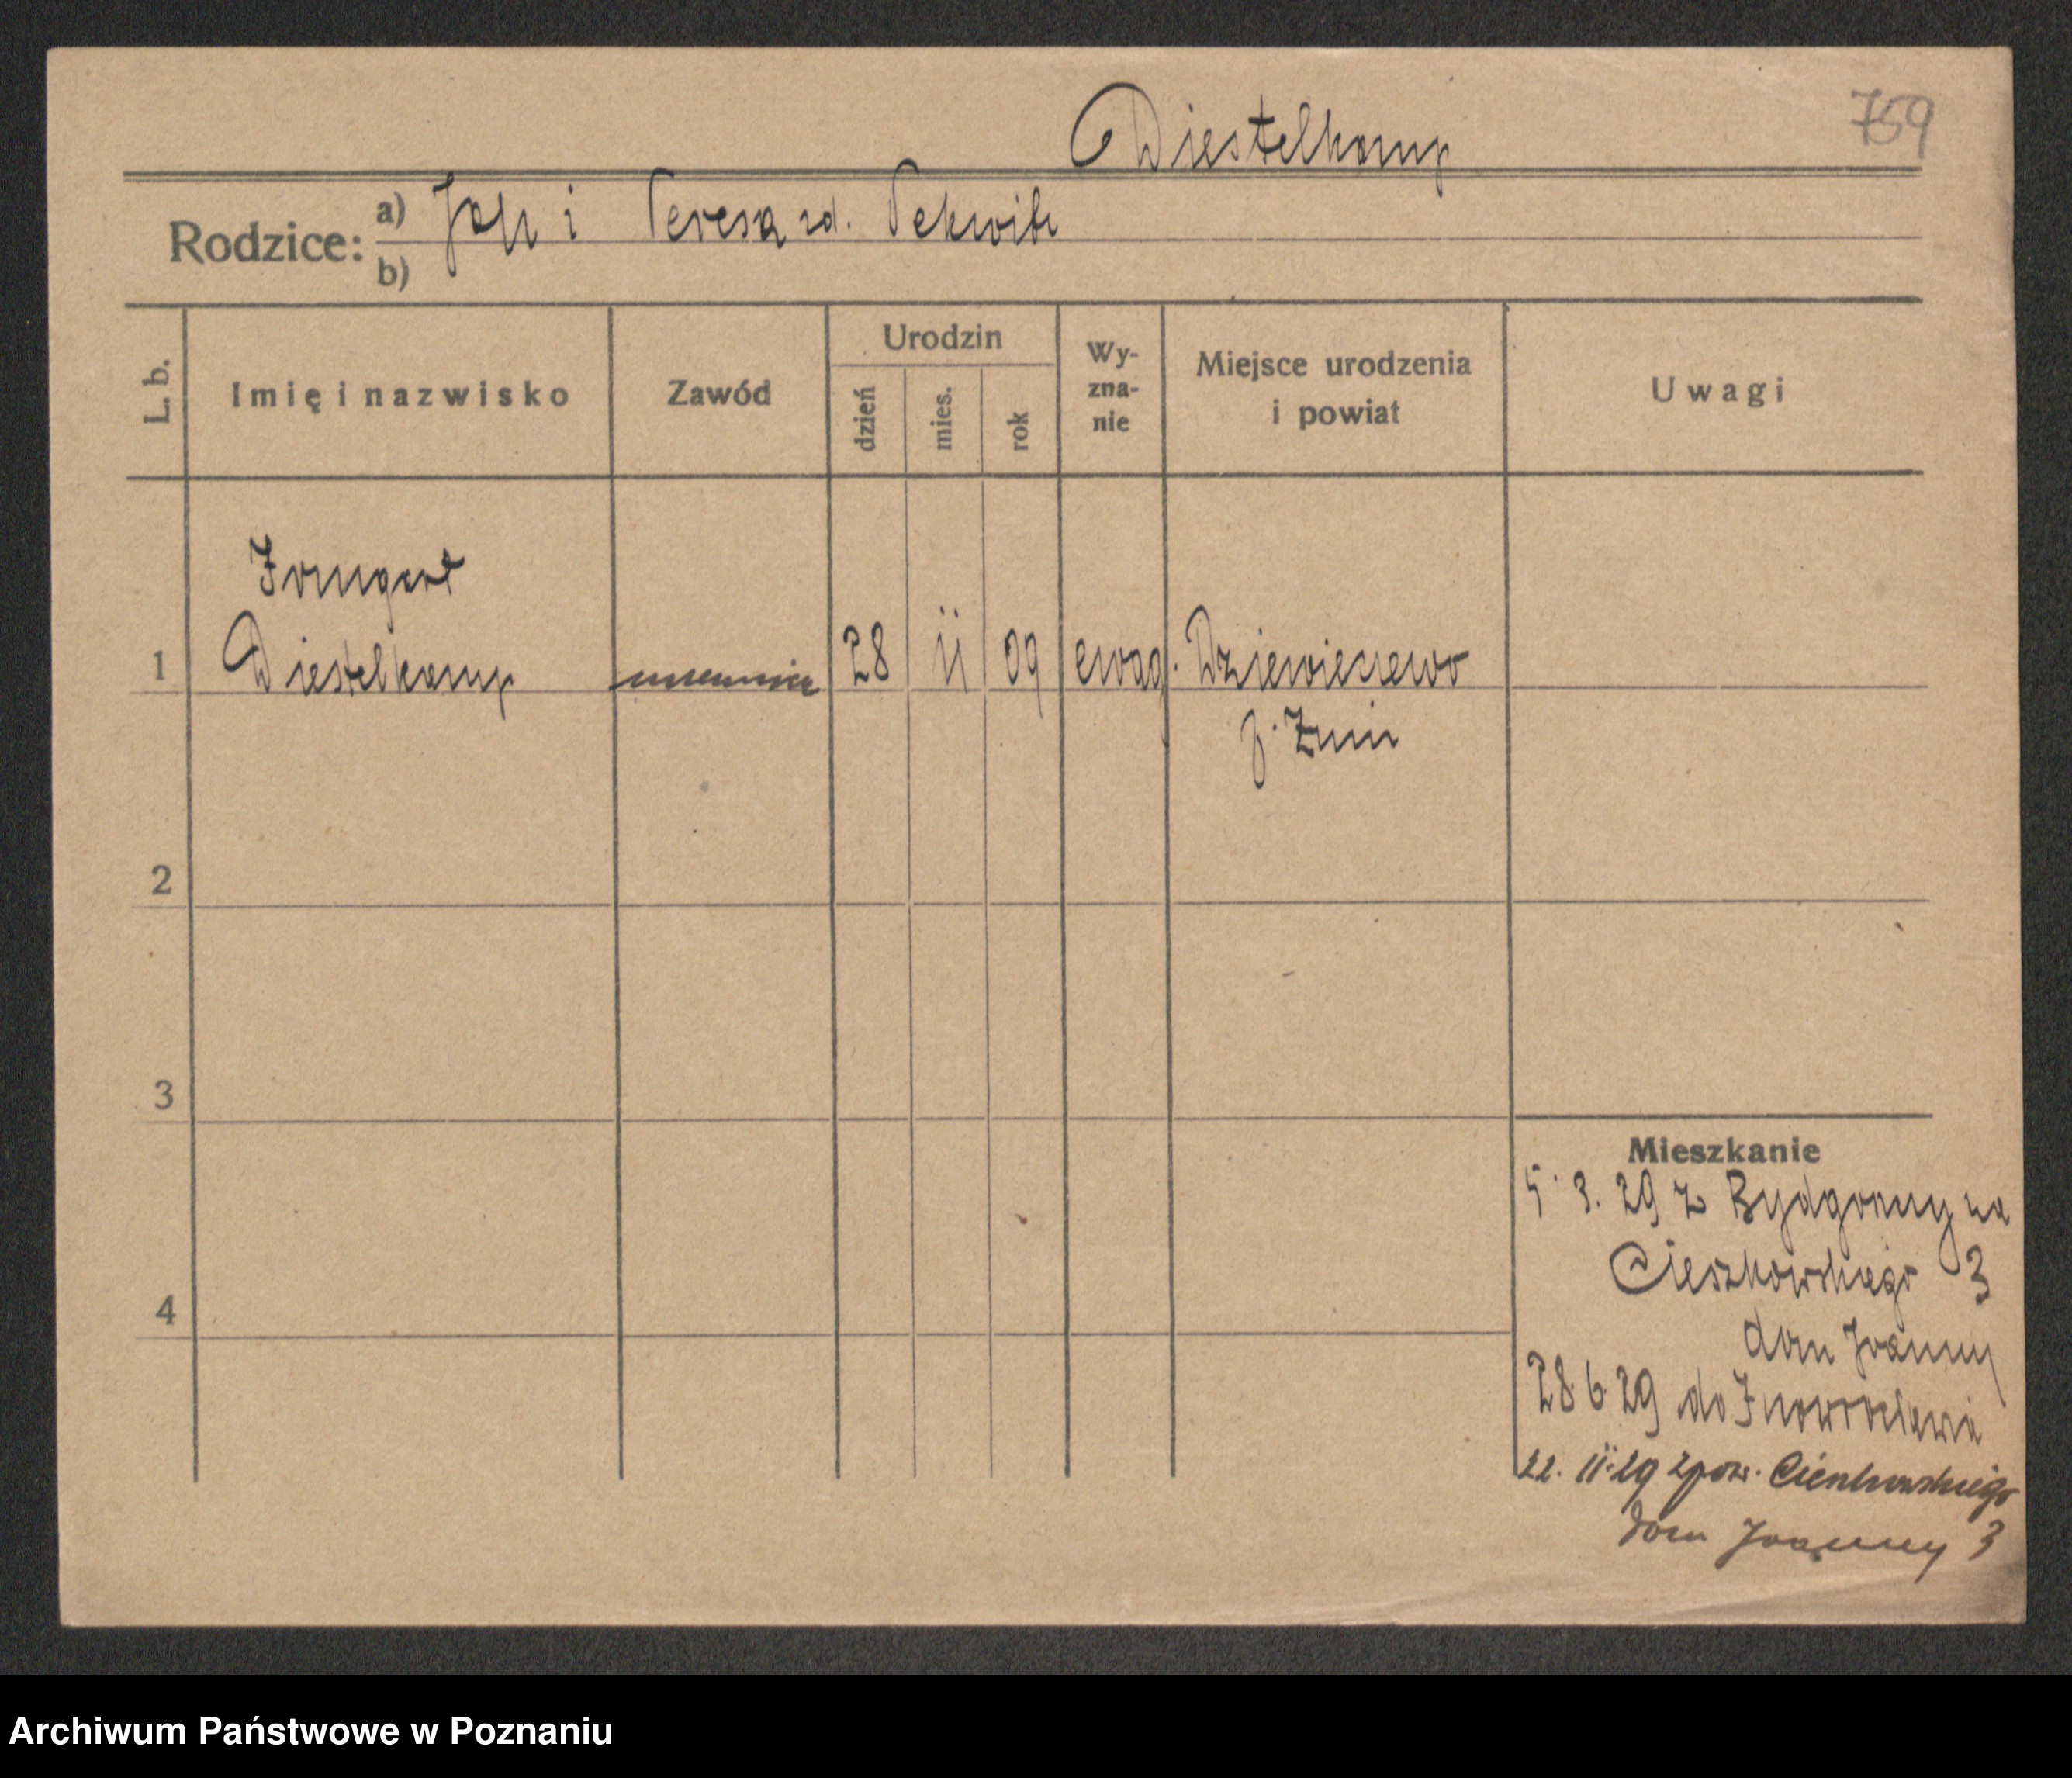 759
Diestelkamp
Rodzice: a) Jan i Teresa zd.
b)
L. b.
Imię i nazwisko
Zawód
Urodzin
dzień
mies.
rok
Wy-
zna-
nie
Miejsce urodzenia
i powiat
Uwagi
Irmgart
1 Diestelkamp 28 11 09 ewag. Dziewierzewo
p. Żnin
2
3
4
Mieszkanie
5. 3. 29 z Bydgoszczy na
Cieszkowskiego 3
dom Joanny
28 6 29 do Inowrocławia
22. 11. 29 zpow. Cieszkowskiego
dom Joanny 3
Archiwum Państwowe w Poznaniu